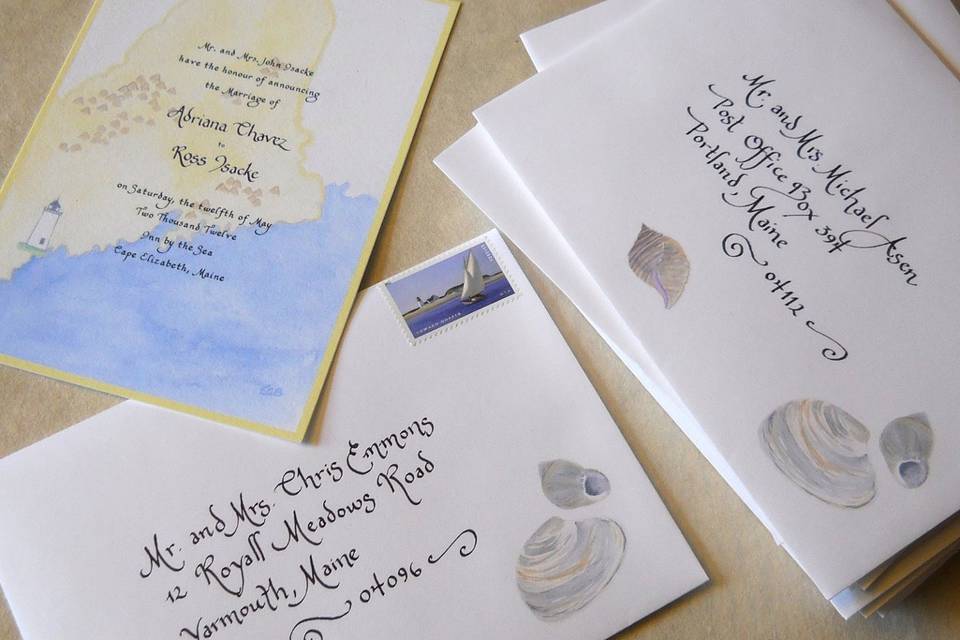 Mr. and Mrs. John Isacke
have the honour of announcing
the Marriage of
Adriana Chavez
to
Ross Isacke
on Saturday, the twelfth of May
Two Thousand Twelve
Inn by the Sea
Cape Elizabeth, Maine
EDWARD HOPPER
Mr. and Mrs. Chris Emmons
12 Royall Meadows Road
Yarmouth, Maine
04096
Mr. and Mrs. Michael Asen
Post Office Box 394
Portland, Maine
04112